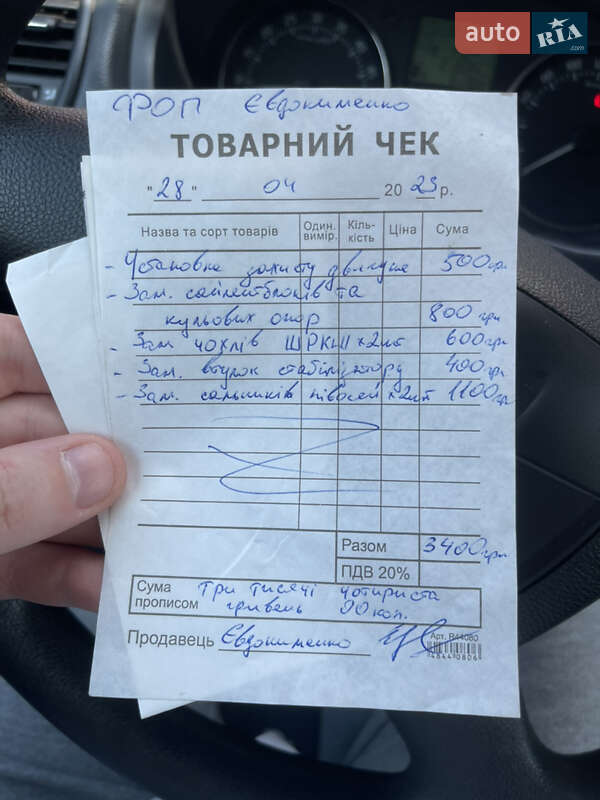 auto RIA .com
ФОП Євдокименко
ТОВАРНИЙ ЧЕК
"28" 04 2023 р.
Назва та сорт товарів Один. вимір. Кіль-кість Ціна Сума
- Установка захисту двигуна 500 грн
- Зам. сайлентблоків та
кульових опор 800 грн
- Зам чохлів ШРКШ х2шт 600 грн
- Зам. втулок стабілізатору 400 грн
- Зам. сальників півосей х2шт 1100 грн
Разом 3400 грн
ПДВ 20%
Сума прописом Три тисячі чотириста
гривень 00 коп.
Продавець Євдокименко
Арт. R44080